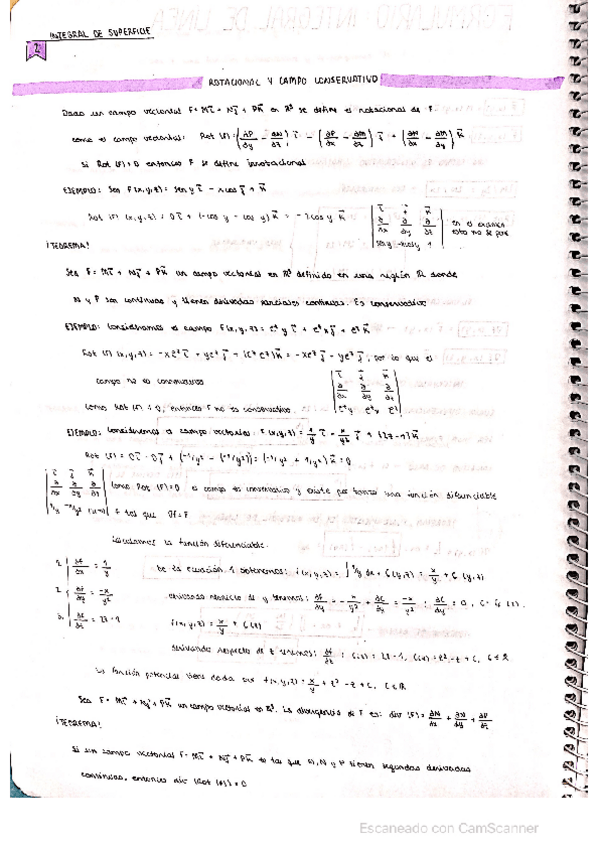 INTEGRAL DE SUPERFICIE
2
ROTACIONAL Y CAMPO CONSERVATIVO
Dado un campo vectorial F = Mi + Nj + Pk en R³ se define el rotacional de F
como el campo vectorial: Rot (F) = (∂P/∂y - ∂N/∂z) i - (∂P/∂x - ∂M/∂z) j + (∂N/∂x - ∂M/∂y) k
Si Rot (F) = 0 entonces F se define irrotacional
EJEMPLO: Sea F(x,y,z) = sen y i - x cos y j + k
Rot (F) (x,y,z) = 0i + (-cos y - cos y) k = -2cos y k
i j k
∂/∂x ∂/∂y ∂/∂z
sen y -xcos y 1
en el examen esto no se pone
¡TEOREMA!
Sea F = Mi + Nj + Pk un campo vectorial en R³ definido en una región R donde
N y P son continuas y tienen derivadas parciales continuas. Es conservativo
EJEMPLO: Consideramos el campo F(x,y,z) = e^z y i + e^z x j + e^z k
Rot (F) (x,y,z) = -xe^z i + ye^z j + (e^z - e^z) k = -xe^z i - ye^z j, por lo que el
campo no es conservativo
i j k
∂/∂x ∂/∂y ∂/∂z
e^z y e^z x e^z
Como Rot (F) ≠ 0, entonces F no es conservativo.
EJEMPLO: Consideremos el campo vectorial F(x,y,z) = 1/y i - x/y² j + (2z-1) k
Rot (F) = 0i - 0j + (-1/y² - (-1/y²)) = (-1/y² + 1/y²) k = 0
i j k
∂/∂x ∂/∂y ∂/∂z
1/y -x/y² (2z-1)
Como Rot (F) = 0 el campo es conservativo y existe por tanto una función diferenciable
f tal que ∇f = F
Calculamos la función diferenciable.
1. ∂f/∂x = 1/y
De la ecuación 1 obtenemos: f(x,y,z) = ∫ 1/y dx + G(y,z) = x/y + G(y,z)
2. ∂f/∂y = -x/y²
derivando respecto de y tenemos: ∂f/∂y = -x/y² + ∂G/∂y = -x/y² ; ∂G/∂y = 0, G = G(z).
3. ∂f/∂z = 2z-1
f(x,y,z) = x/y + G(z)
derivando respecto de z tenemos: ∂f/∂z : G'(z) = 2z-1, G(z) = z² - z + C, C ∈ R
La función potencial viene dada por f(x,y,z) = x/y + z² - z + C, C ∈ R
Sea F = Mi + Nj + Pk un campo vectorial en R³. La divergencia de F es: div (F) = ∂M/∂x + ∂N/∂y + ∂P/∂z
¡TEOREMA!
Si un campo vectorial F = Mi + Nj + Pk es tal que M, N y P tienen segundas derivadas
continuas, entonces div (Rot (F)) = 0
Escaneado con CamScanner